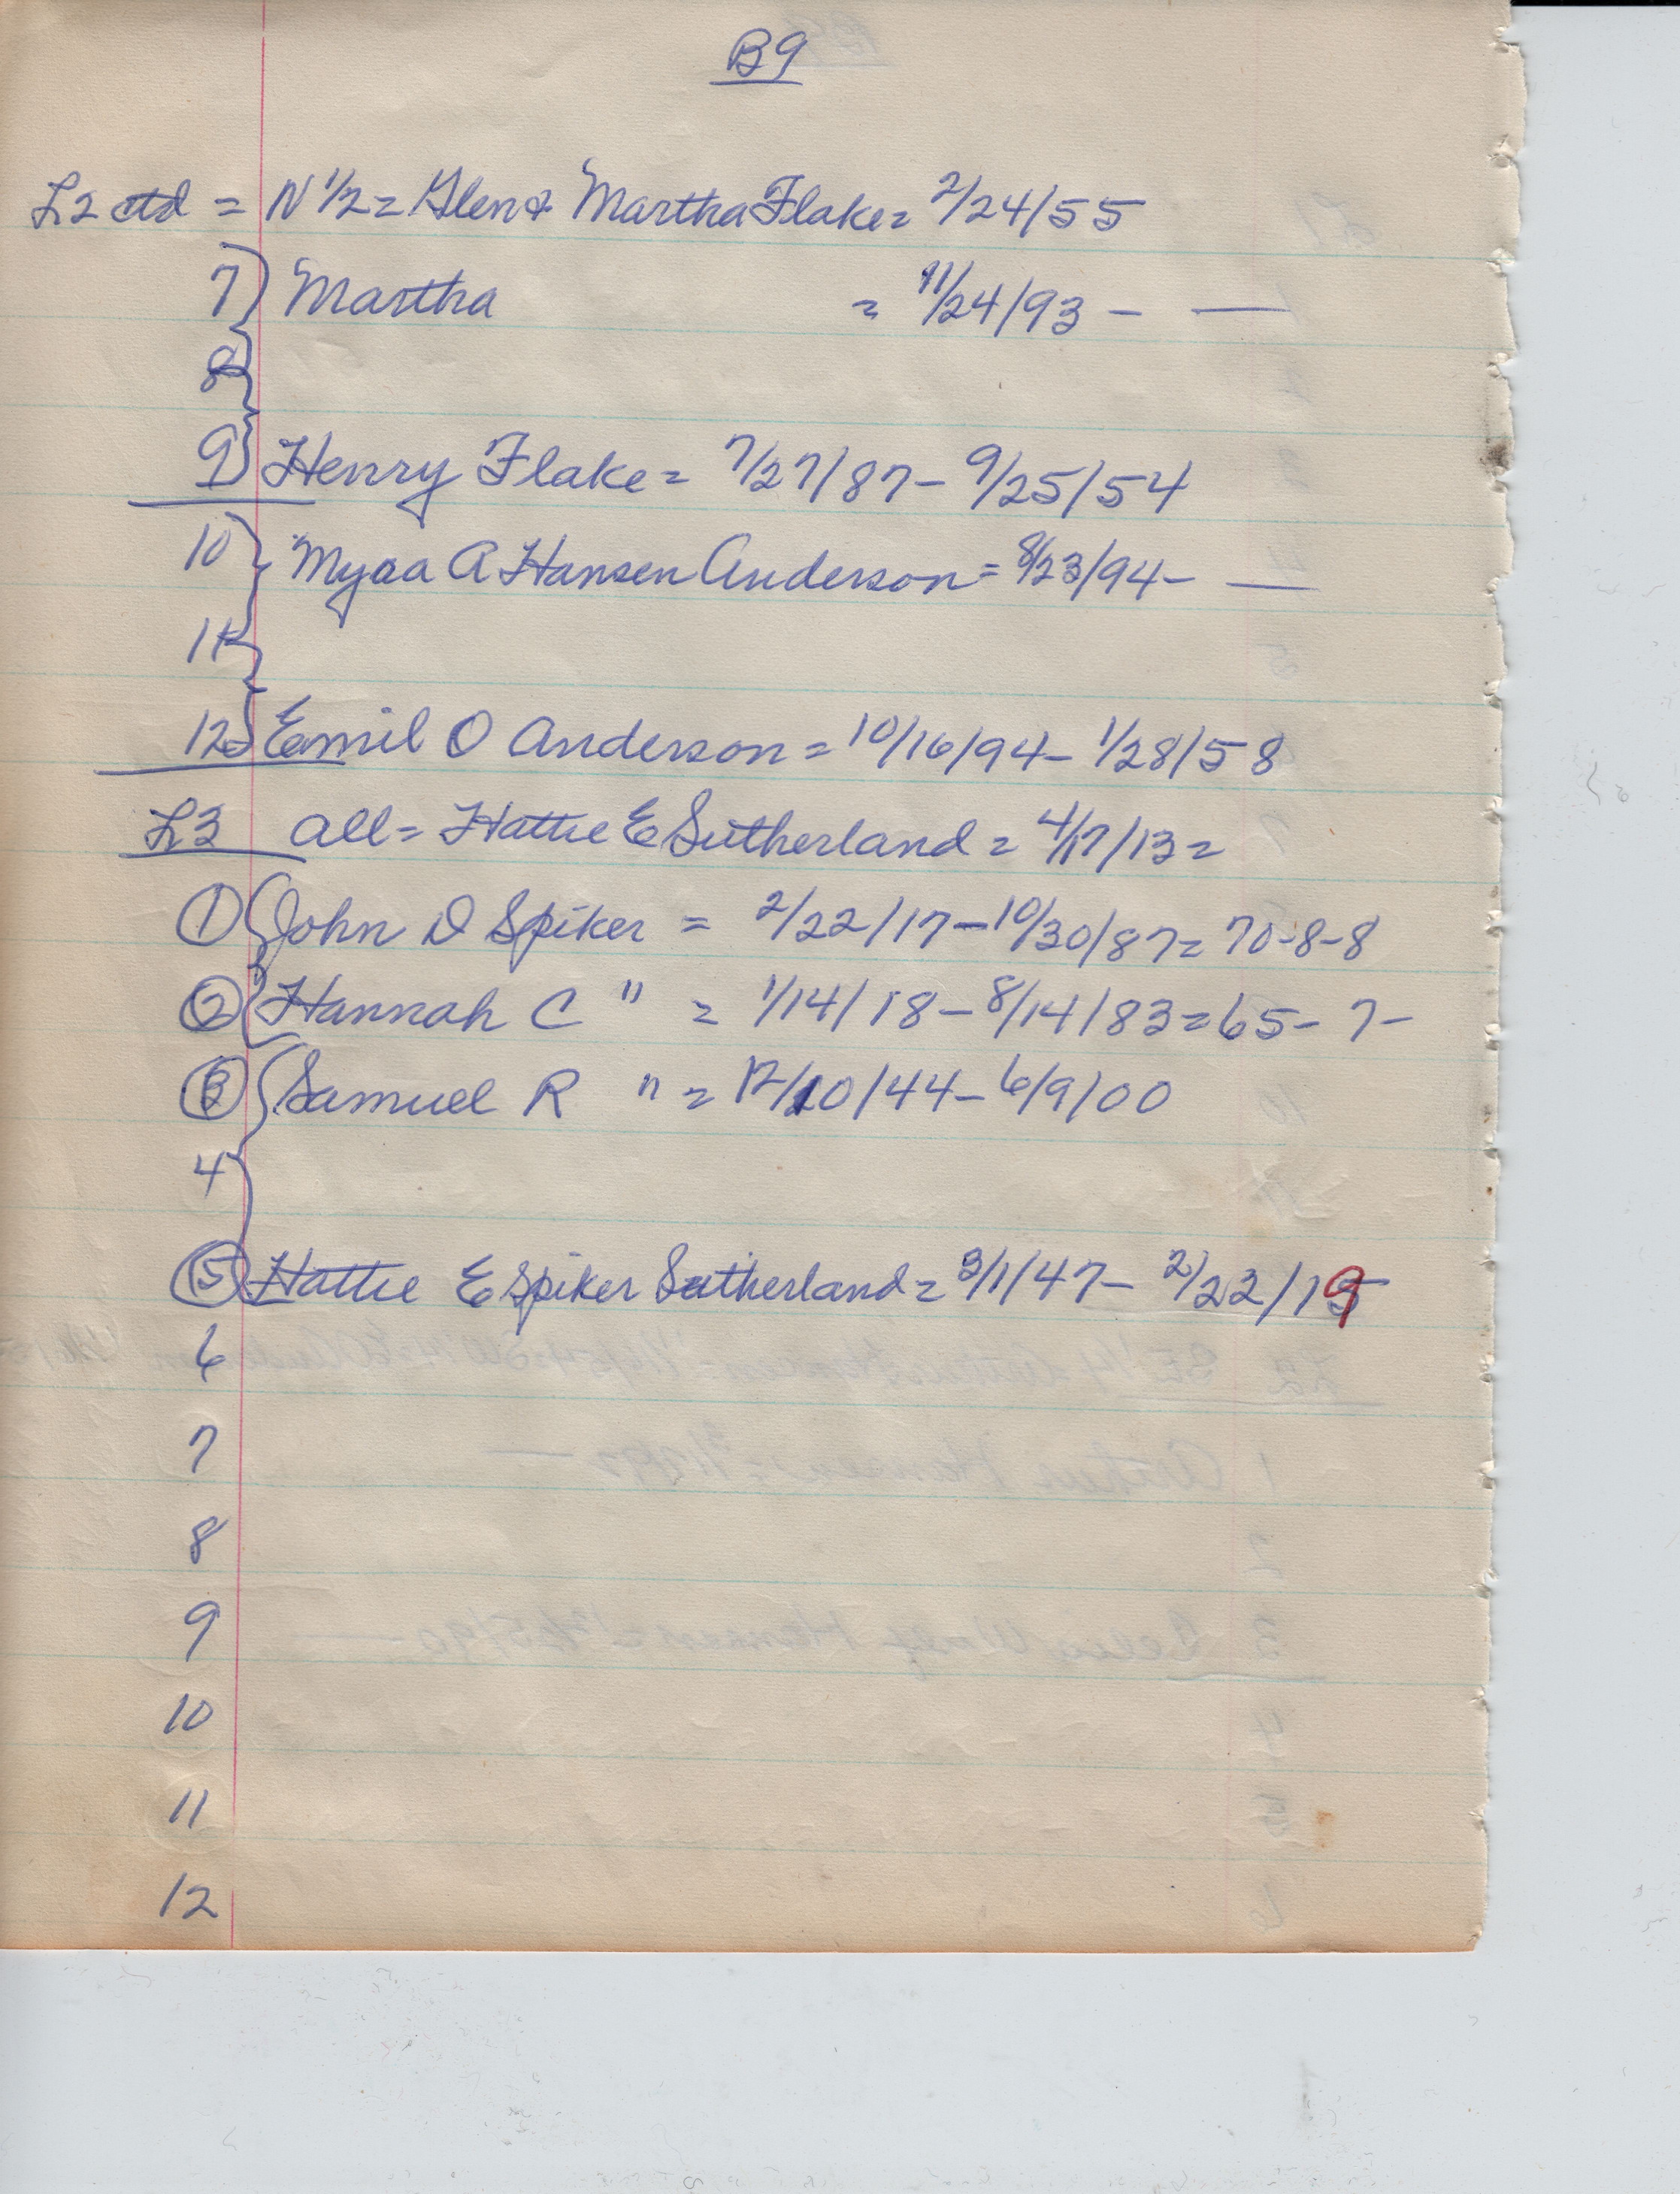 B9
L2 ctd = N 1/2 = Glen & Martha Flake = 2/24/55
7) Martha = 11/24/93 - —
8
9) Henry Flake = 7/27/87 - 9/25/54
10 A Hansen Anderson = 8/23/94 - —
11
12 Emil O Anderson = 10/16/94 - 1/28/58
L3 all = Hattie E Sutherland = 4/17/13 =
1 John D Spiker = 2/22/17 - 10/30/87 = 70-8-8
2 Hannah C " = 1/14/18 - 8/14/83 = 65-7-
3 Samuel R " = 12/10/44 - 6/9/00
4
5 Hattie E Spiker Sutherland = 3/1/47 - 2/23/19
6
7
8
9
10
11
12